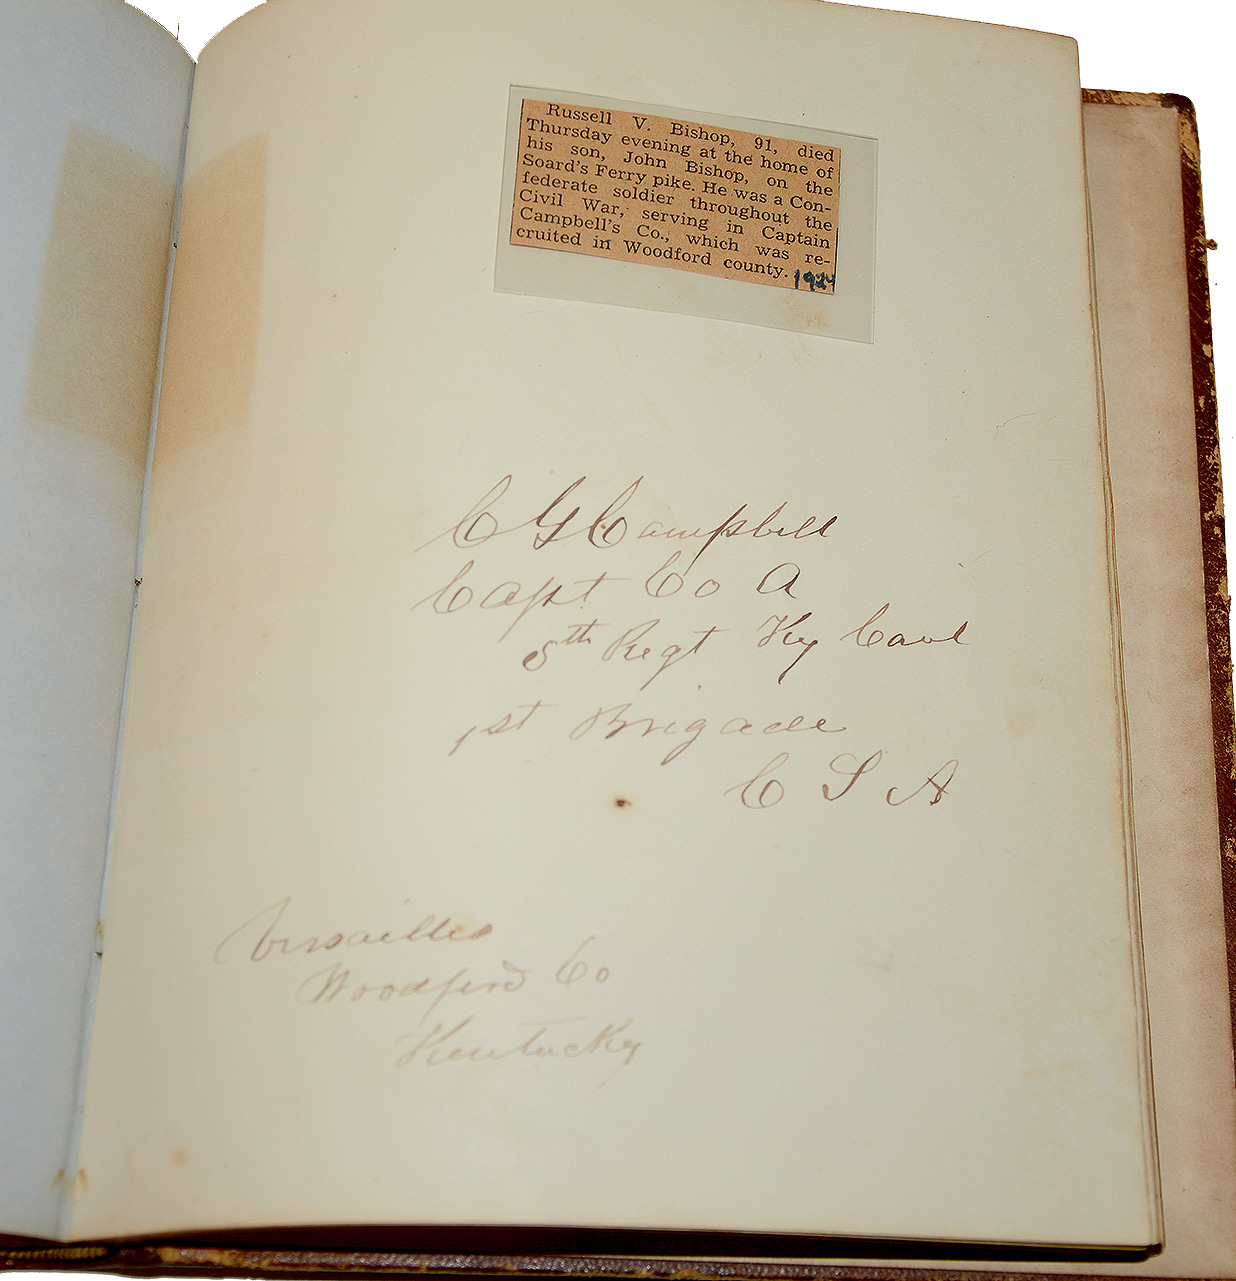 Russell V. Bishop, 91, died
Thursday evening at the home of
his son, John Bishop, on the
Soard's Ferry pike. He was a Con-
federate soldier throughout the
Civil War, serving in Captain
Campbell's Co., which was re-
cruited in Woodford county.
1924
C G Campbell
Capt Co A
5th Regt Ky Cavl
1st Brigade
C S A
Versailles
Woodford Co
Kentucky